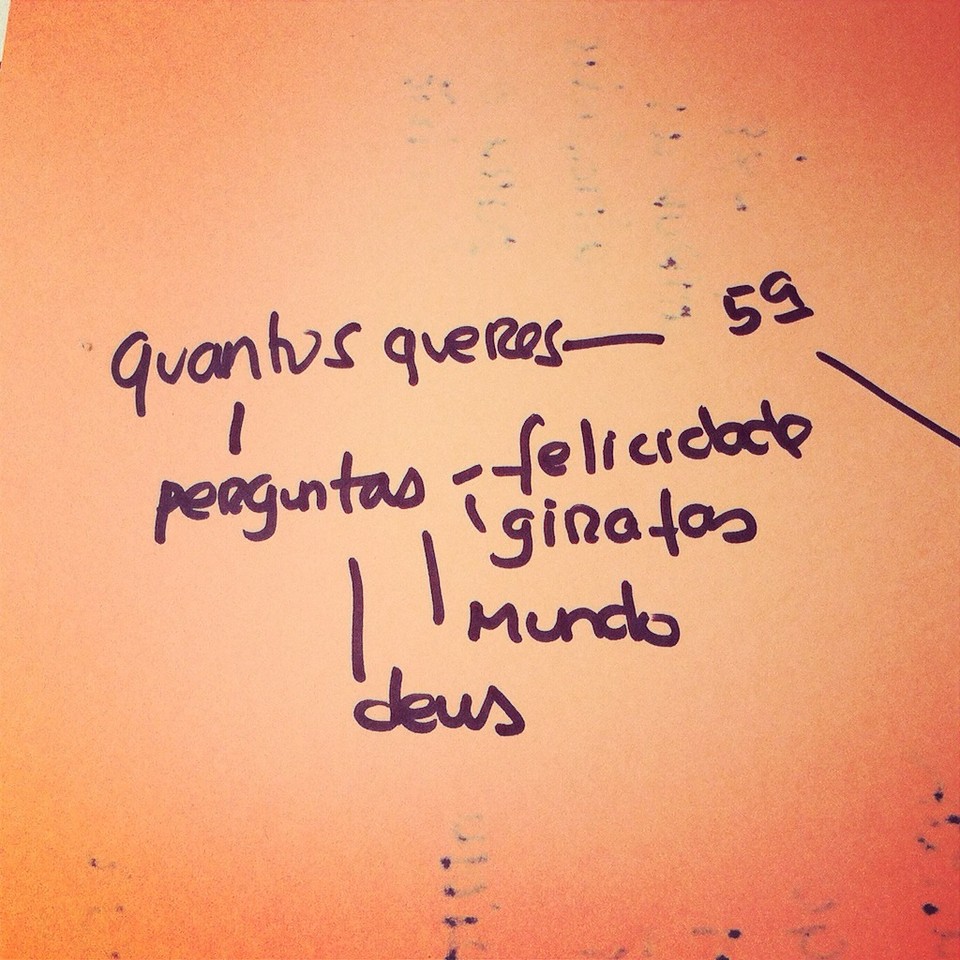 quantos queres 59
perguntas felicidade
girafas
Mundo
deus